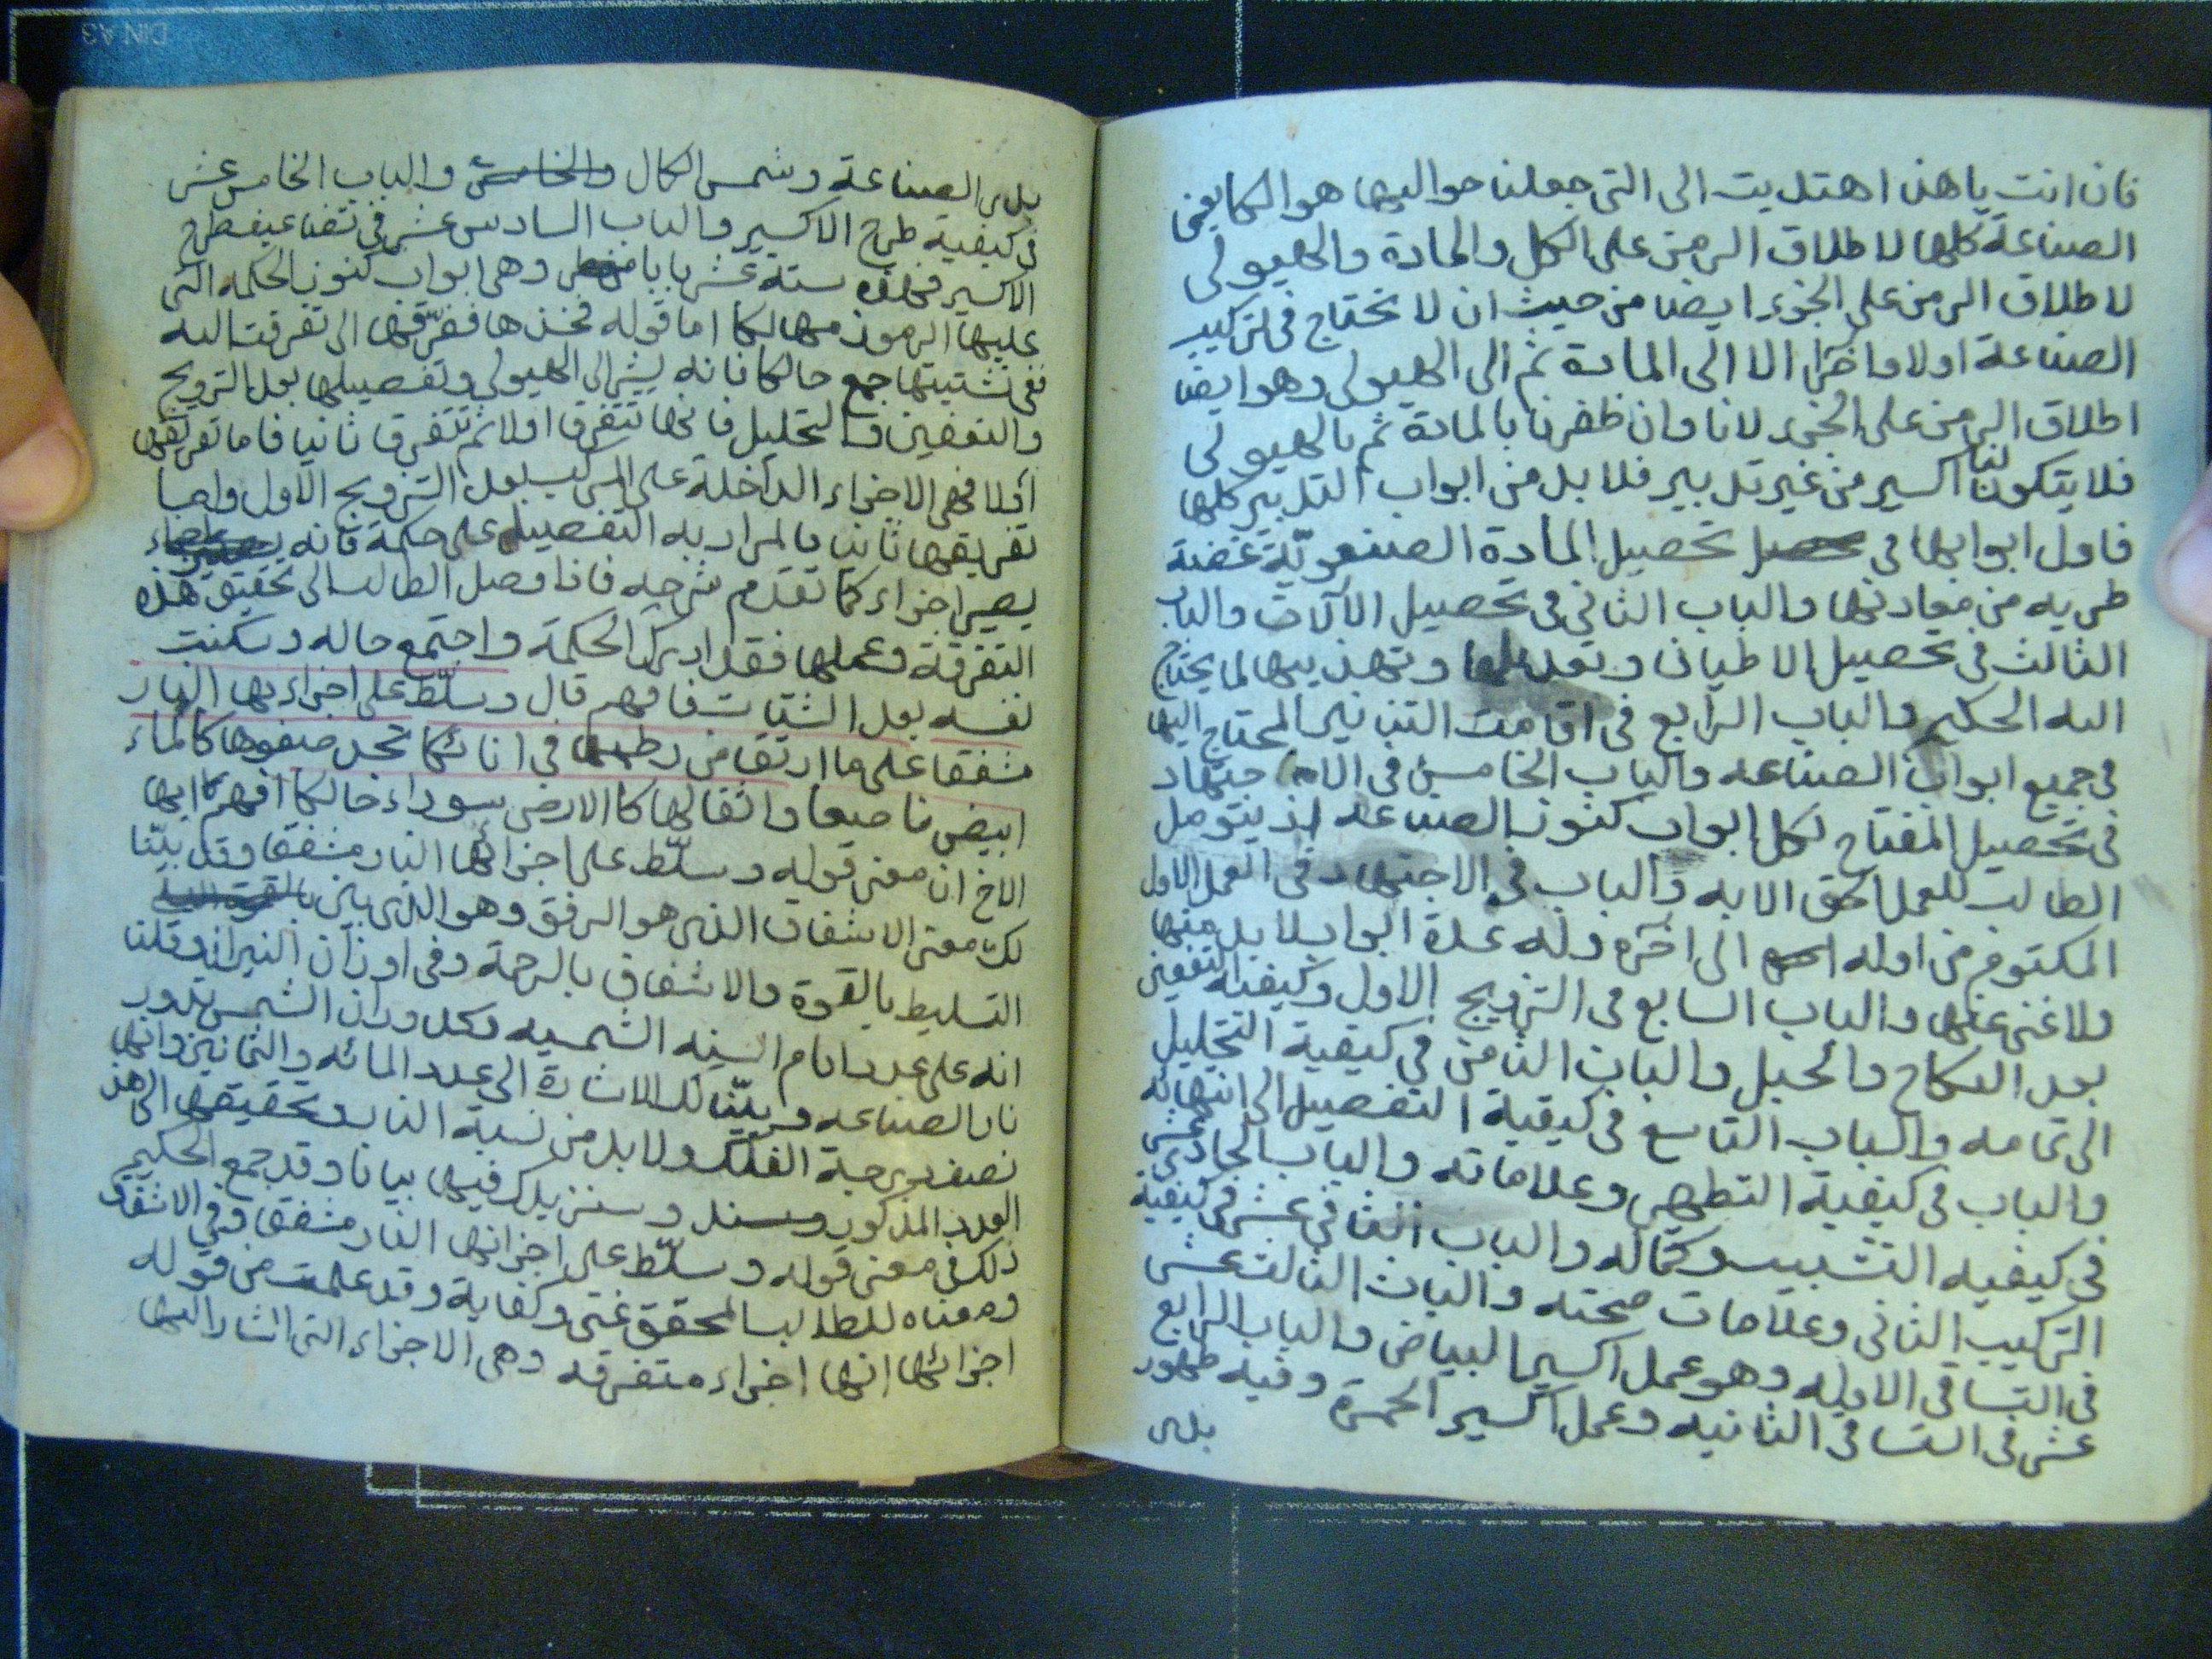 فان انت يا هذا اهتديت الى التى جعلنا حواليها هو الكما يعنى
الصناعة كلها لاطلاق الرمز على الكل والمادة والهيولى
لاطلاق الرمز على الجزء ايضا من حيث ان لا نحتاج فى تركيب
الصناعة اولا واخرا الا الى المادة ثم الى الهيولى وهو ايضا
اطلاق الرمز على الجزء لانا وان ظفرنا بالمادة ثم بالهيولى
فلا يتكون لنا اكسير من غير تدبير فلا بد من ابواب التدبير كلها
فاول ابوابها فى تحصيل المادة الصنعويّة غضة
طريه من معادنها والباب الثانى فى تحصيل الالات والباب
الثالث فى تحصيل الاطيان وتعديلها وتهذيبها لما يحتاج
اليه الحكيم والباب الرابع فى اقامت التنانير المحتاج اليها
فى جميع ابواب الصناعه والباب الخامس فى الاجتهاد
فى تحصيل المفتاح لكل ابواب كنوز الصناعه اذ يتوصل
الطالب للعمل الحق الا به والباب فى الاجتهاد فى العمل الاول
المكتوم من اوله الى اخره وله عدة ابواب لا بد منها
ولا غنى عنها والباب السابع فى التزويج الاول وكيفية التعفين
بعد النكاح والحبل والباب الثامن فى كيفية التحليل
الى تمامه والباب التاسع فى كيفية التفصيل الى انتهائه
والباب فى كيفية التطهير وعلاماته والباب الحادى عشر
فى كيفيه التشبيب وكماله والباب الثانى عشر فى كيفية
التركيب الثانى وعلامات صحته والباب الثالث عشر
فى التساقى الاوله وهو عمل اكسير البياض والباب الرابع
عشر فى التساقى الثانيه وعمل اكسير الحمرة وفيه ظهور
بدر
بدر الصناعة وشمس الكمال والباب الخامس عشر
فى كيفية طرح الاكسير والباب السادس عشر فى تضاعيف طرح
الاكسير فهذه ستة عشر بابا وهى ابواب كنوز الحكمه التى
عليها الرموز مهالكا اما قوله فخذها ففرّقها الى تفرقت اليه
ففى تشتيتها جمع حالكا فانه يشير الى الهيولى وتفصيلها بعد التزويج
والتعفين والتحليل فانها تتفرق اولا ثم تتفرق ثانيا فاما تفريقها
اولا فهى الاجزاء الداخلة على المركب بعد التزويج الاول واما
تفريقها ثانيا فالمراد به التفصيل على حكمة فانه
يصير اجزاء كما تقدم شرحه فاذا وصل الطالب الى تحقيق هذه
التفرقة وعملها فقد ادرك الحكمة واجتمع حاله وسكنت
نفسه بعد الشتات فافهم قال وسلّط على اجزاءيها النار
مشفقا على ما ارتقا من رطبها فى انائكا تحد صفوها كالماء
ابيض ناصعا واثقالها كالارض سوداء حالكا افهم ايها
الاخ ان معنى قوله وسلّط على اجزائها النار مشفقا وقد بيّنا
لك معنى الاشفاق الذى هو الرفق وهو الذى بين
التسليط بالقوة والاشفاق بالرحمة وفى اوزان النيران وقلنا
انه على عدد ايام السنه الشمسيه وكل دوران الشمس تدور
نار الصناعه وبيّنا لك الاشارة الى عدد المائه والثمانين وانها
نصف درجة الفلك ولا بد من نسبة النار وتحقيقها الى هذ
العدد المذكور وسنزيدك فيها بيانا وقد جمع الحكيم
ذلك فى معنى قوله وسلّط على اجزائها النار مشفقا وفى الاشفاق
ومعناه للطالب المحقق غنى وكفاية وقد علمت من قوله
اجزائها انها اجزاء متفرقه وهى الاجزاء التى اشار اليها